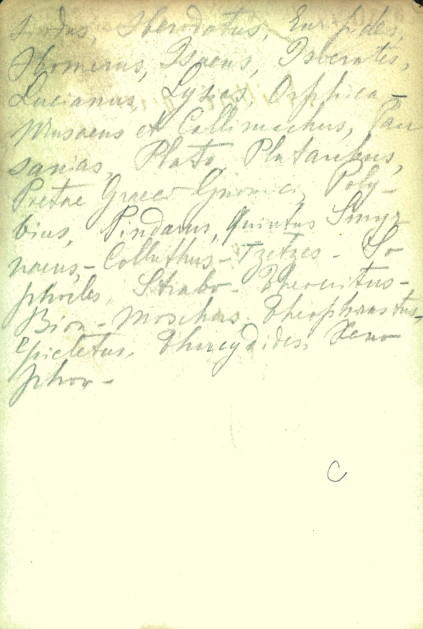 siodus, Herodotus, Euripides,
Homerus, Isaeus, Isocrates,
Lucianus, Lysias Orphica-
Musaeus et Callimachus, Pau
sanias, Plato, Plutarchus,
Poetae Graeci Gnomici, Poly-
bius, Pindarus, Quintus Smyr
naeus, - Colluthus - Tzetzes - So
phocles, Strabo - Theocritus -
Bion - Moschus. Theophrastus -
Epictetus, Thucydides, Xeno
phon -
C